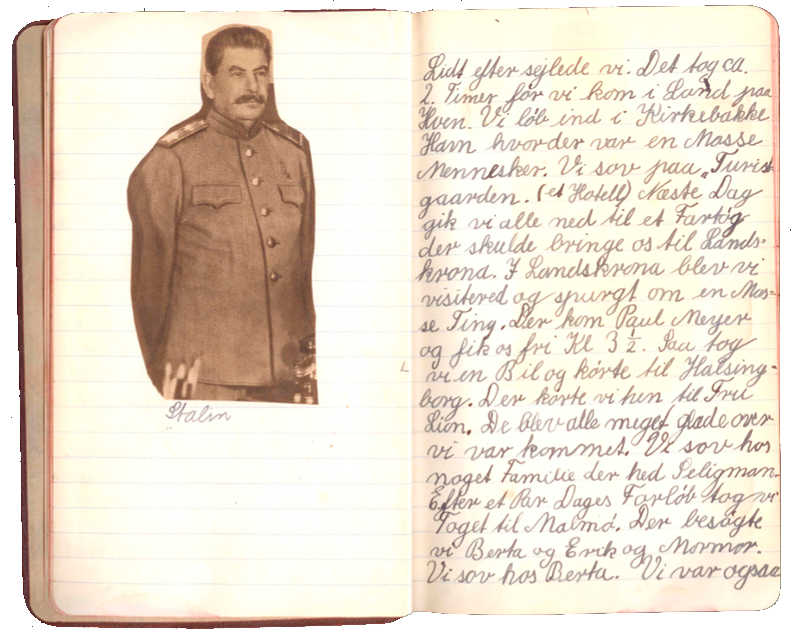 Stalin
Lidt efter sejlede vi. Det tog ca.
2. Timer før vi kom i Land paa
Hven. Vi løb ind i Kirkebakke
Havn hvorder var en Masse
Mennesker. Vi sov paa „Turist
gaarden. (et Hotell) Næste Dag
gik vi alle ned til et Fartøg
der skulde bringe os til Lands-
krona. I Landskrona blev vi
visitered og spurgt om en Mas-
se Ting. Der kom Paul Meyer
og fik os fri Kl 3 ½. Saa tog
vi en Bil og kørte til Halsing-
borg. Der kørte vi hen til Fru
Lion. De blev alle meget glade over
vi var kommet. Vi sov hos
noget Familie der hed Seligman.
Efter et Par Dages Forløb tog vi
Toget til Malmø. Der besøgte
vi Berta og Erik og Mormor.
Vi sov hos Berta. Vi var ogsaa